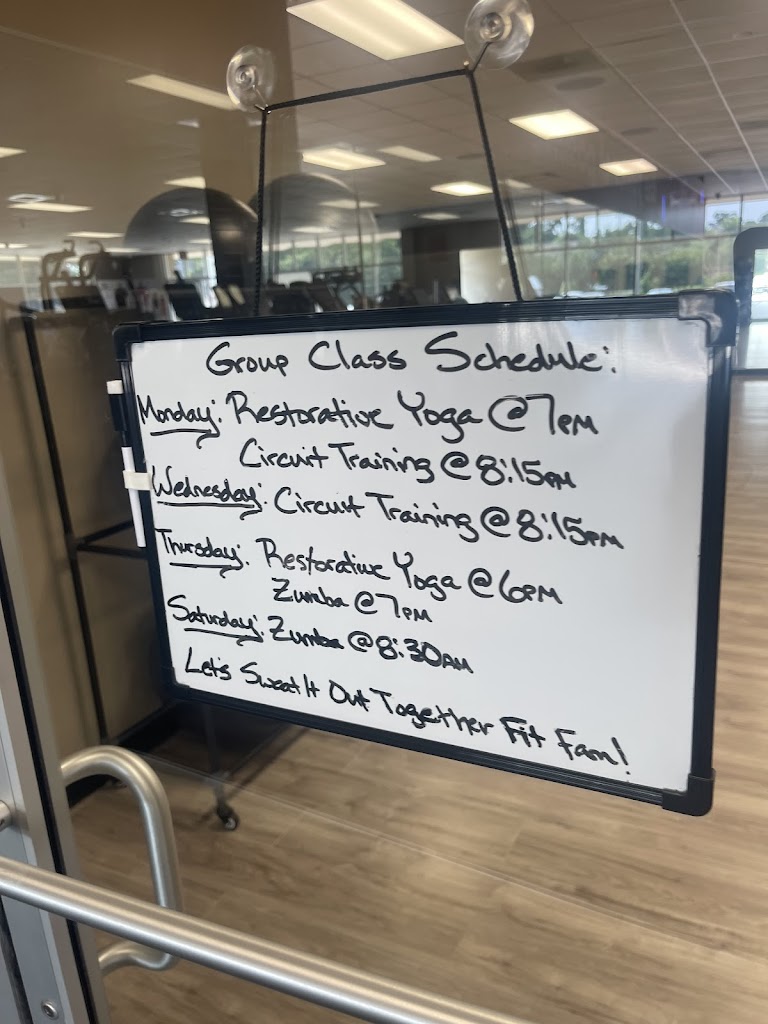 Group Class Schedule:
Monday: Restorative Yoga @ 7PM
Circuit Training @ 8:15PM
Wednesday: Circuit Training @ 8:15PM
Thursday: Restorative Yoga @ 6PM
Zumba @ 7PM
Saturday: Zumba @ 8:30AM
Let's Sweat It Out Together Fit Fam!